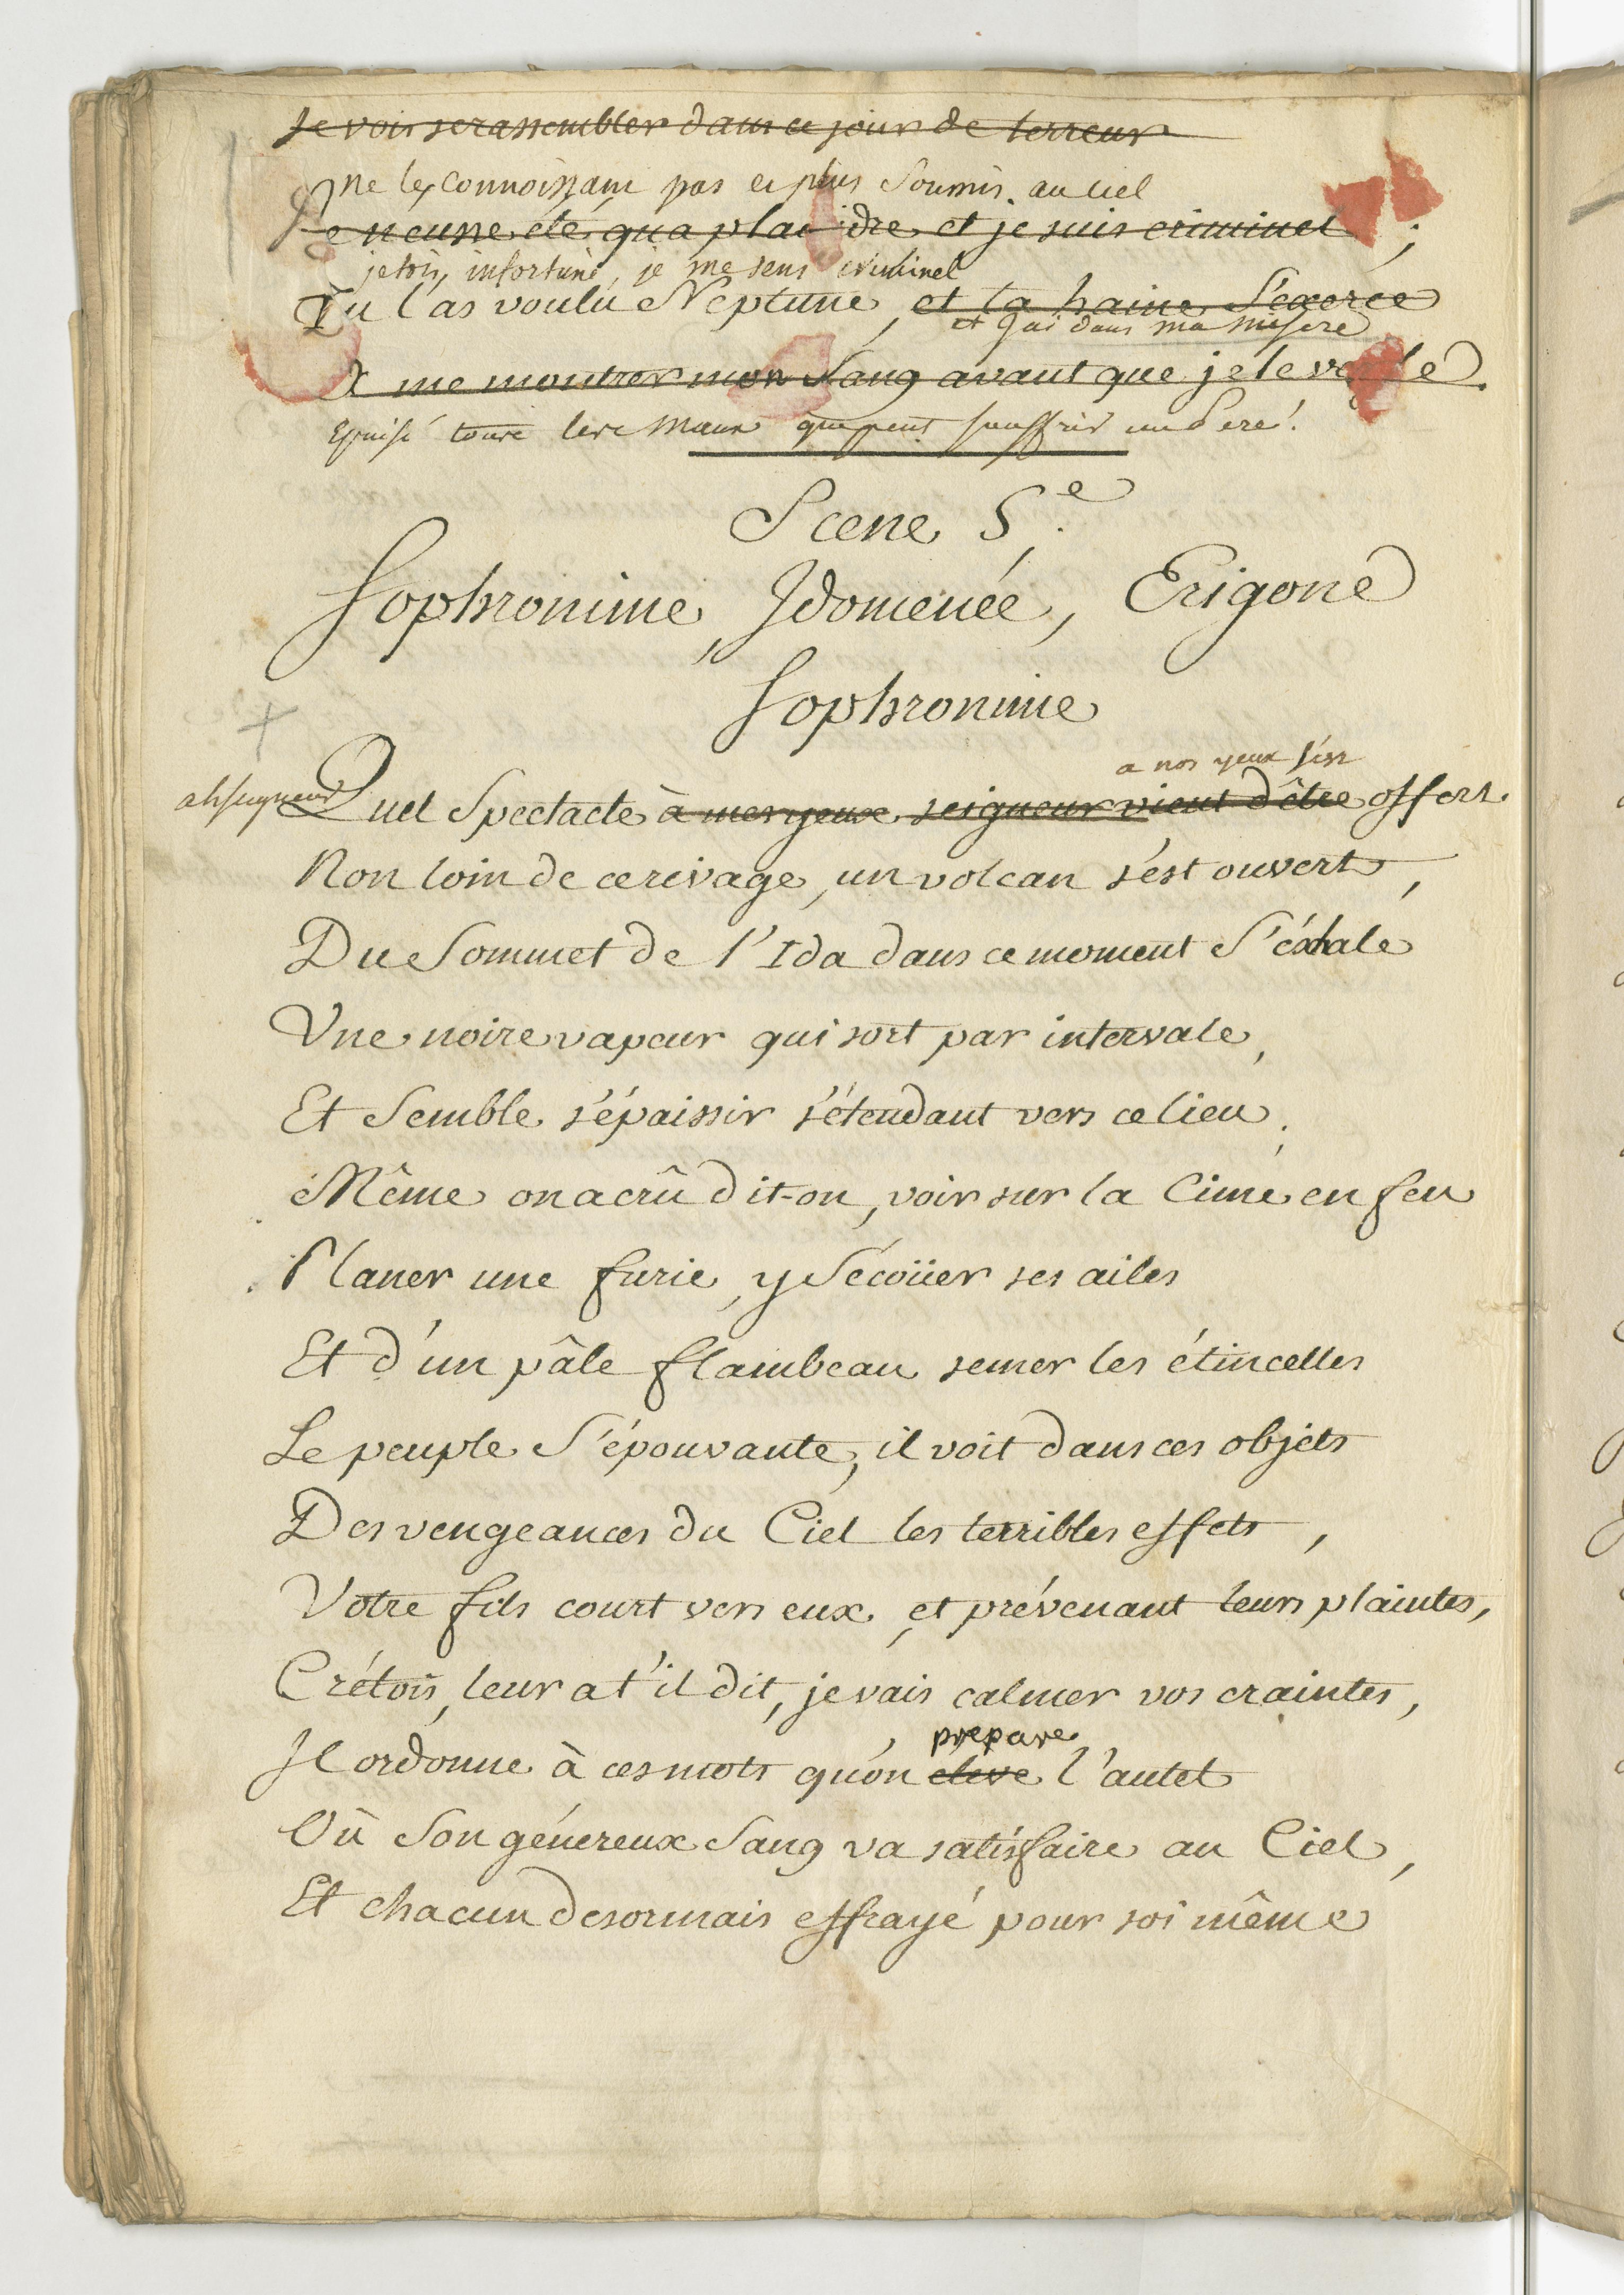 Je vois se rassembler dans ce jour de terreur
ne les connoissant pas et plus soumis au ciel
Je n'eusse été qu'a plaindre et je suis criminel ;
jetois infortuné, je me sens criminel
Tu l'as voulu Neptune, et ta haine s'exerce
et j'ai dans ma misere
A me montrer mon sang avant que je le verse.
Epuisé tous les maux que peut souffrir un Pere !
Scene 5.e
Sophronime, Idomenée, Erigone
Sophronime
a nos yeux s'est
ah seigneur Quel Spectacle à mes yeux seigneur vient d'être offert.
Non loin de ce rivage, un volcan s'est ouvert,
Du Sommet de l'Ida dans ce moment S'éxhale
Une noire vapeur qui sort par intervale,
Et Semble s'épaissir s'étendant vers ce lieu.
Même on a crû dit-on, voir sur la Cime en feu
Planer une furie, y Sécoüer ses ailes
Et d'un pâle flambeau semer les étincelles
Le peuple S'épouvante, il voit dans ces objets
Des vengeances du Ciel les terribles effets,
Votre fils court vers eux, et prévenant leurs plaintes,
Crétois, leur a t'il dit, je vais calmer vos craintes,
prepare
Il ordonne à ces mots qu'on eleve l'autel
Où Son géuereux Sang va satisfaire au Ciel,
Et chacun desormais effrayé pour soi même